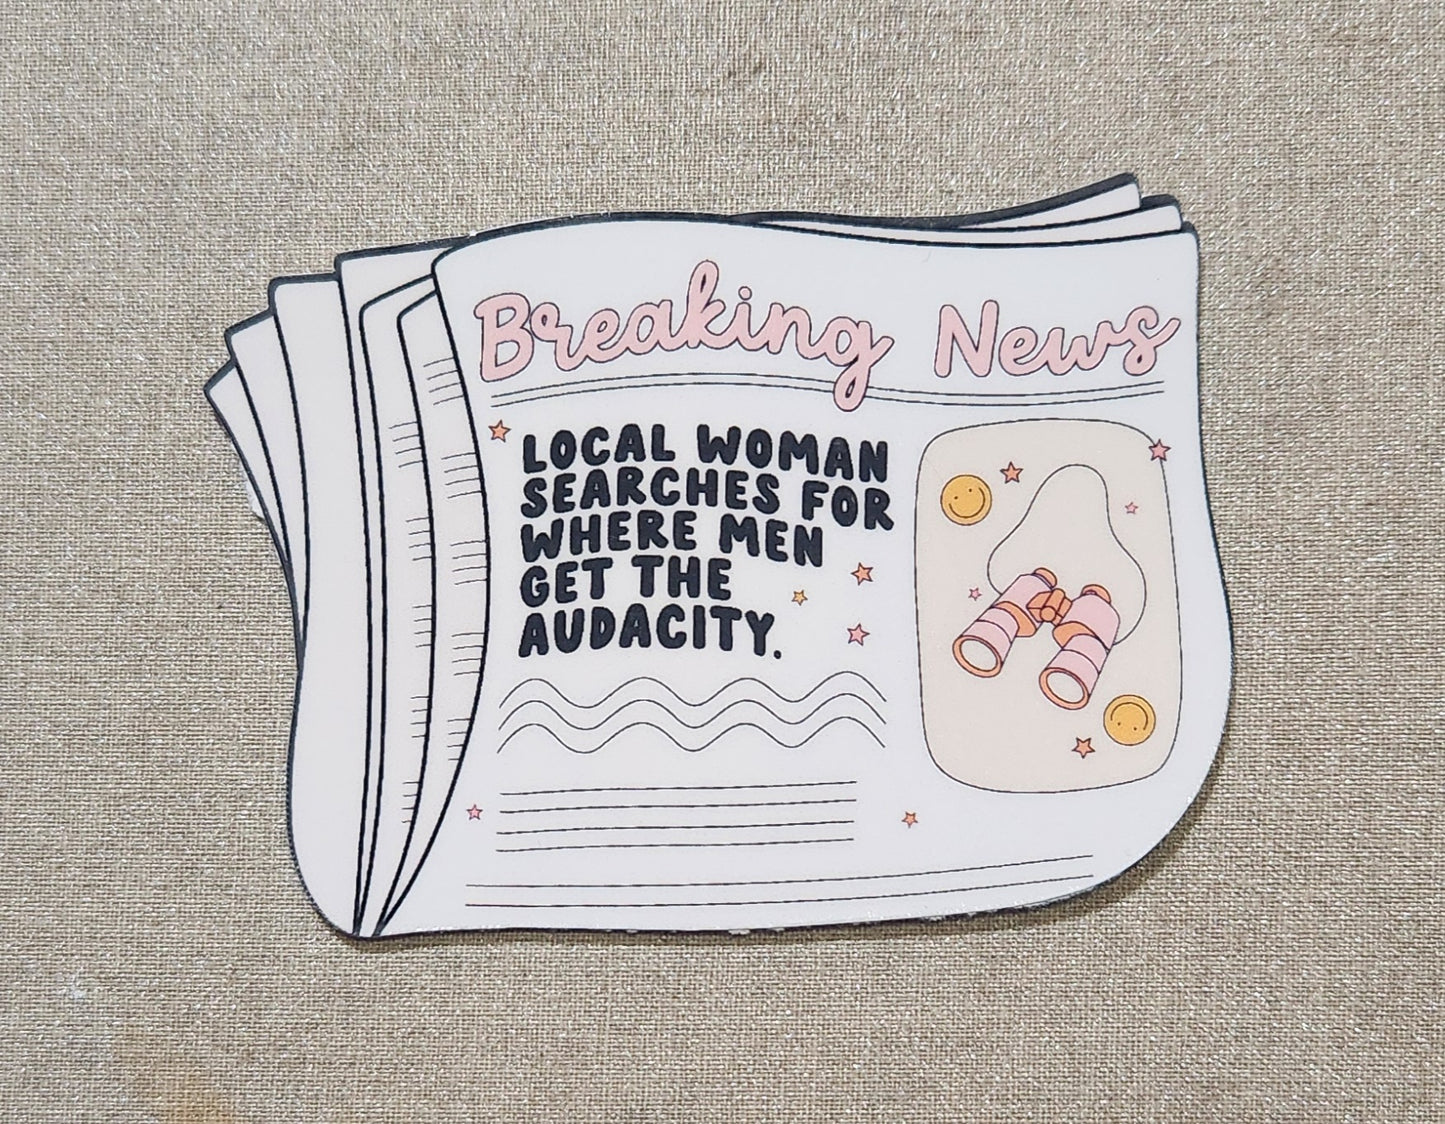 Breaking News
LOCAL WOMAN
SEARCHES FOR
WHERE MEN
GET THE
AUDACITY.